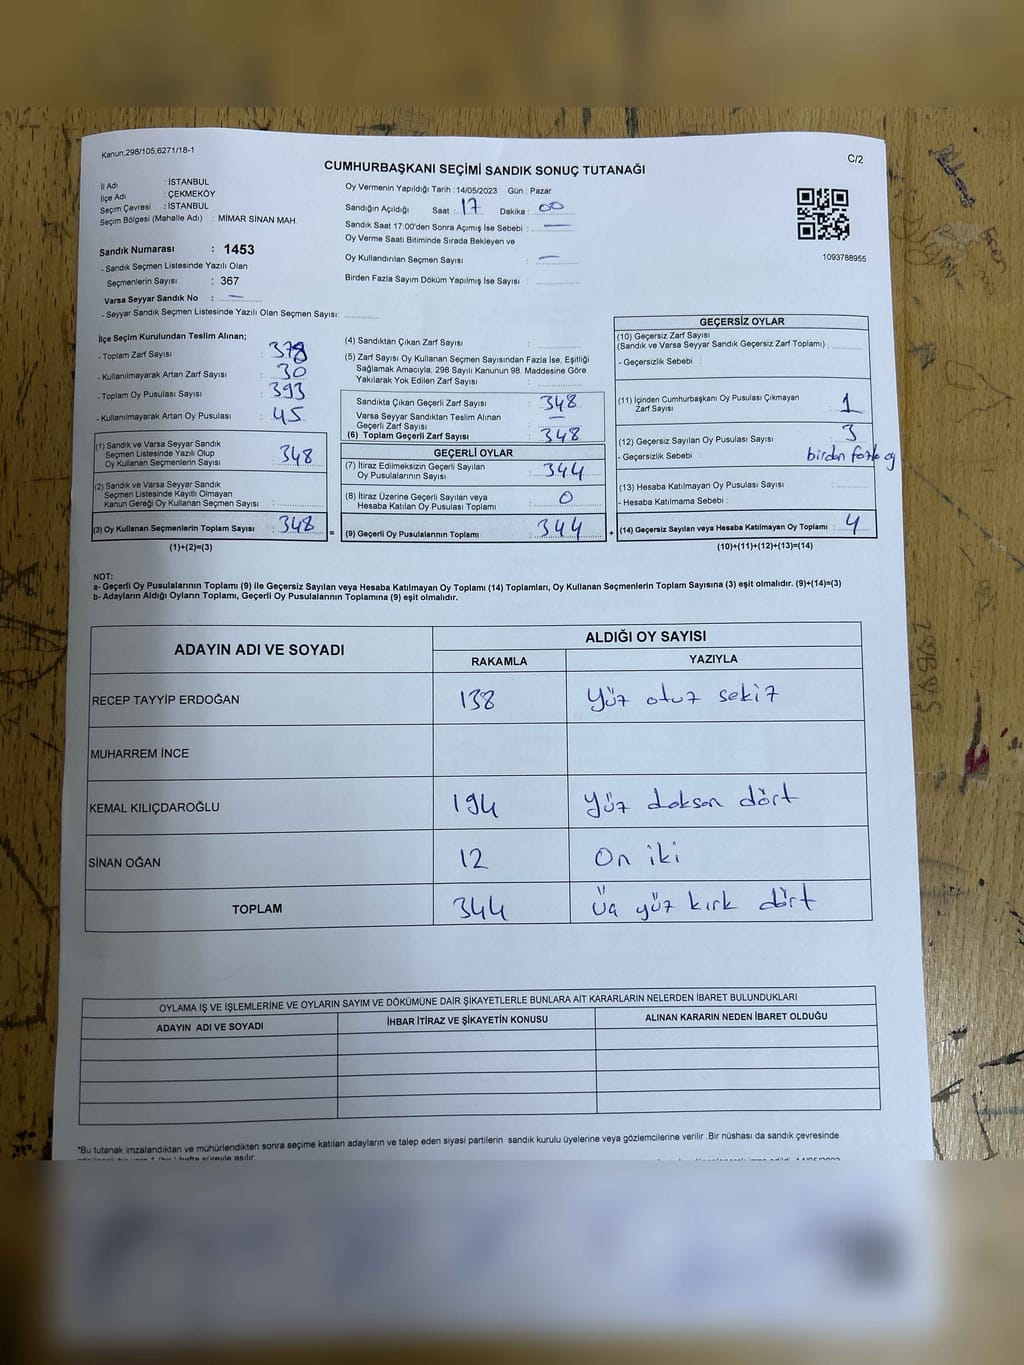 Kanun:298/105,6271/18-1
C/2
CUMHURBAŞKANI SEÇİMİ SANDIK SONUÇ TUTANAĞI
İl Adı : İSTANBUL
İlçe Adı : ÇEKMEKÖY
Seçim Çevresi : İSTANBUL
Seçim Bölgesi (Mahalle Adı) : MİMAR SİNAN MAH.
Sandık Numarası : 1453
- Sandık Seçmen Listesinde Yazılı Olan
Seçmenlerin Sayısı : 367
Varsa Seyyar Sandık No : —
- Seyyar Sandık Seçmen Listesinde Yazılı Olan Seçmen Sayısı:
Oy Vermenin Yapıldığı Tarih :14/05/2023 Gün : Pazar
Sandığın Açıldığı Saat : 17 Dakika : 00
Sandık Saat 17:00'den Sonra Açımış İse Sebebi : —
Oy Verme Saati Bitiminde Sırada Bekleyen ve
Oy Kullandırılan Seçmen Sayısı : —
Birden Fazla Sayım Döküm Yapılmış İse Sayısı :
1093788955
İlçe Seçim Kurulundan Teslim Alınan;
- Toplam Zarf Sayısı : 378
- Kullanılmayarak Artan Zarf Sayısı : 30
- Toplam Oy Pusulası Sayısı : 393
- Kullanılmayarak Artan Oy Pusulası : 45
(1) Sandık ve Varsa Seyyar Sandık
Seçmen Listesinde Yazılı Olup
Oy Kullanan Seçmenlerin Sayısı : 348
(2) Sandık ve Varsa Seyyar Sandık
Seçmen Listesinde Kayıtlı Olmayan
Kanun Gereği Oy Kullanan Seçmen Sayısı :
(3) Oy Kullanan Seçmenlerin Toplam Sayısı : 348 =
(1)+(2)=(3)
(4) Sandıktan Çıkan Zarf Sayısı :
(5) Zarf Sayısı Oy Kullanan Seçmen Sayısından Fazla İse, Eşitliği
Sağlamak Amacıyla; 298 Sayılı Kanunun 98. Maddesine Göre
Yakılarak Yok Edilen Zarf Sayısı :
Sandıkta Çıkan Geçerli Zarf Sayısı : 348
Varsa Seyyar Sandıktan Teslim Alınan
Geçerli Zarf Sayısı : —
(6) Toplam Geçerli Zarf Sayısı : 348
GEÇERLİ OYLAR
(7) İtiraz Edilmeksizin Geçerli Sayılan
Oy Pusulalarının Sayısı : 344
(8) İtiraz Üzerine Geçerli Sayılan veya
Hesaba Katılan Oy Pusulası Toplamı : 0
(9) Geçerli Oy Pusulalarının Toplamı : 344 +
GEÇERSİZ OYLAR
(10) Geçersiz Zarf Sayısı
(Sandık ve Varsa Seyyar Sandık Geçersiz Zarf Toplamı) :
- Geçersizlik Sebebi :
(11) İçinden Cumhurbaşkanı Oy Pusulası Çıkmayan
Zarf Sayısı : 1
(12) Geçersiz Sayılan Oy Pusulası Sayısı : 3
- Geçersizlik Sebebi : birden fazla oy
(13) Hesaba Katılmayan Oy Pusulası Sayısı :
- Hesaba Katılmama Sebebi :
(14) Geçersiz Sayılan veya Hesaba Katılmayan Oy Toplamı : 4
(10)+(11)+(12)+(13)=(14)
NOT:
a- Geçerli Oy Pusulalarının Toplamı (9) ile Geçersiz Sayılan veya Hesaba Katılmayan Oy Toplamı (14) Toplamları, Oy Kullanan Seçmenlerin Toplam Sayısına (3) eşit olmalıdır. (9)+(14)=(3)
b- Adayların Aldığı Oyların Toplamı, Geçerli Oy Pusulalarının Toplamına (9) eşit olmalıdır.
ADAYIN ADI VE SOYADI
ALDIĞI OY SAYISI
RAKAMLA YAZIYLA
RECEP TAYYİP ERDOĞAN 138 Yüz otuz sekiz
MUHARREM İNCE
KEMAL KILIÇDAROĞLU 194 Yüz doksan dört
SİNAN OĞAN 12 On iki
TOPLAM 344 Üç yüz kırk dört
OYLAMA İŞ VE İŞLEMLERİNE VE OYLARIN SAYIM VE DÖKÜMÜNE DAİR ŞİKAYETLERLE BUNLARA AİT KARARLARIN NELERDEN İBARET BULUNDUKLARI
ADAYIN ADI VE SOYADI İHBAR İTİRAZ VE ŞİKAYETİN KONUSU ALINAN KARARIN NEDEN İBARET OLDUĞU
*Bu tutanak imzalandıktan ve mühürlendikten sonra seçime katılan adayların ve talep eden siyasi partilerin sandık kurulu üyelerine veya gözlemcilerine verilir .Bir nüshası da sandık çevresinde